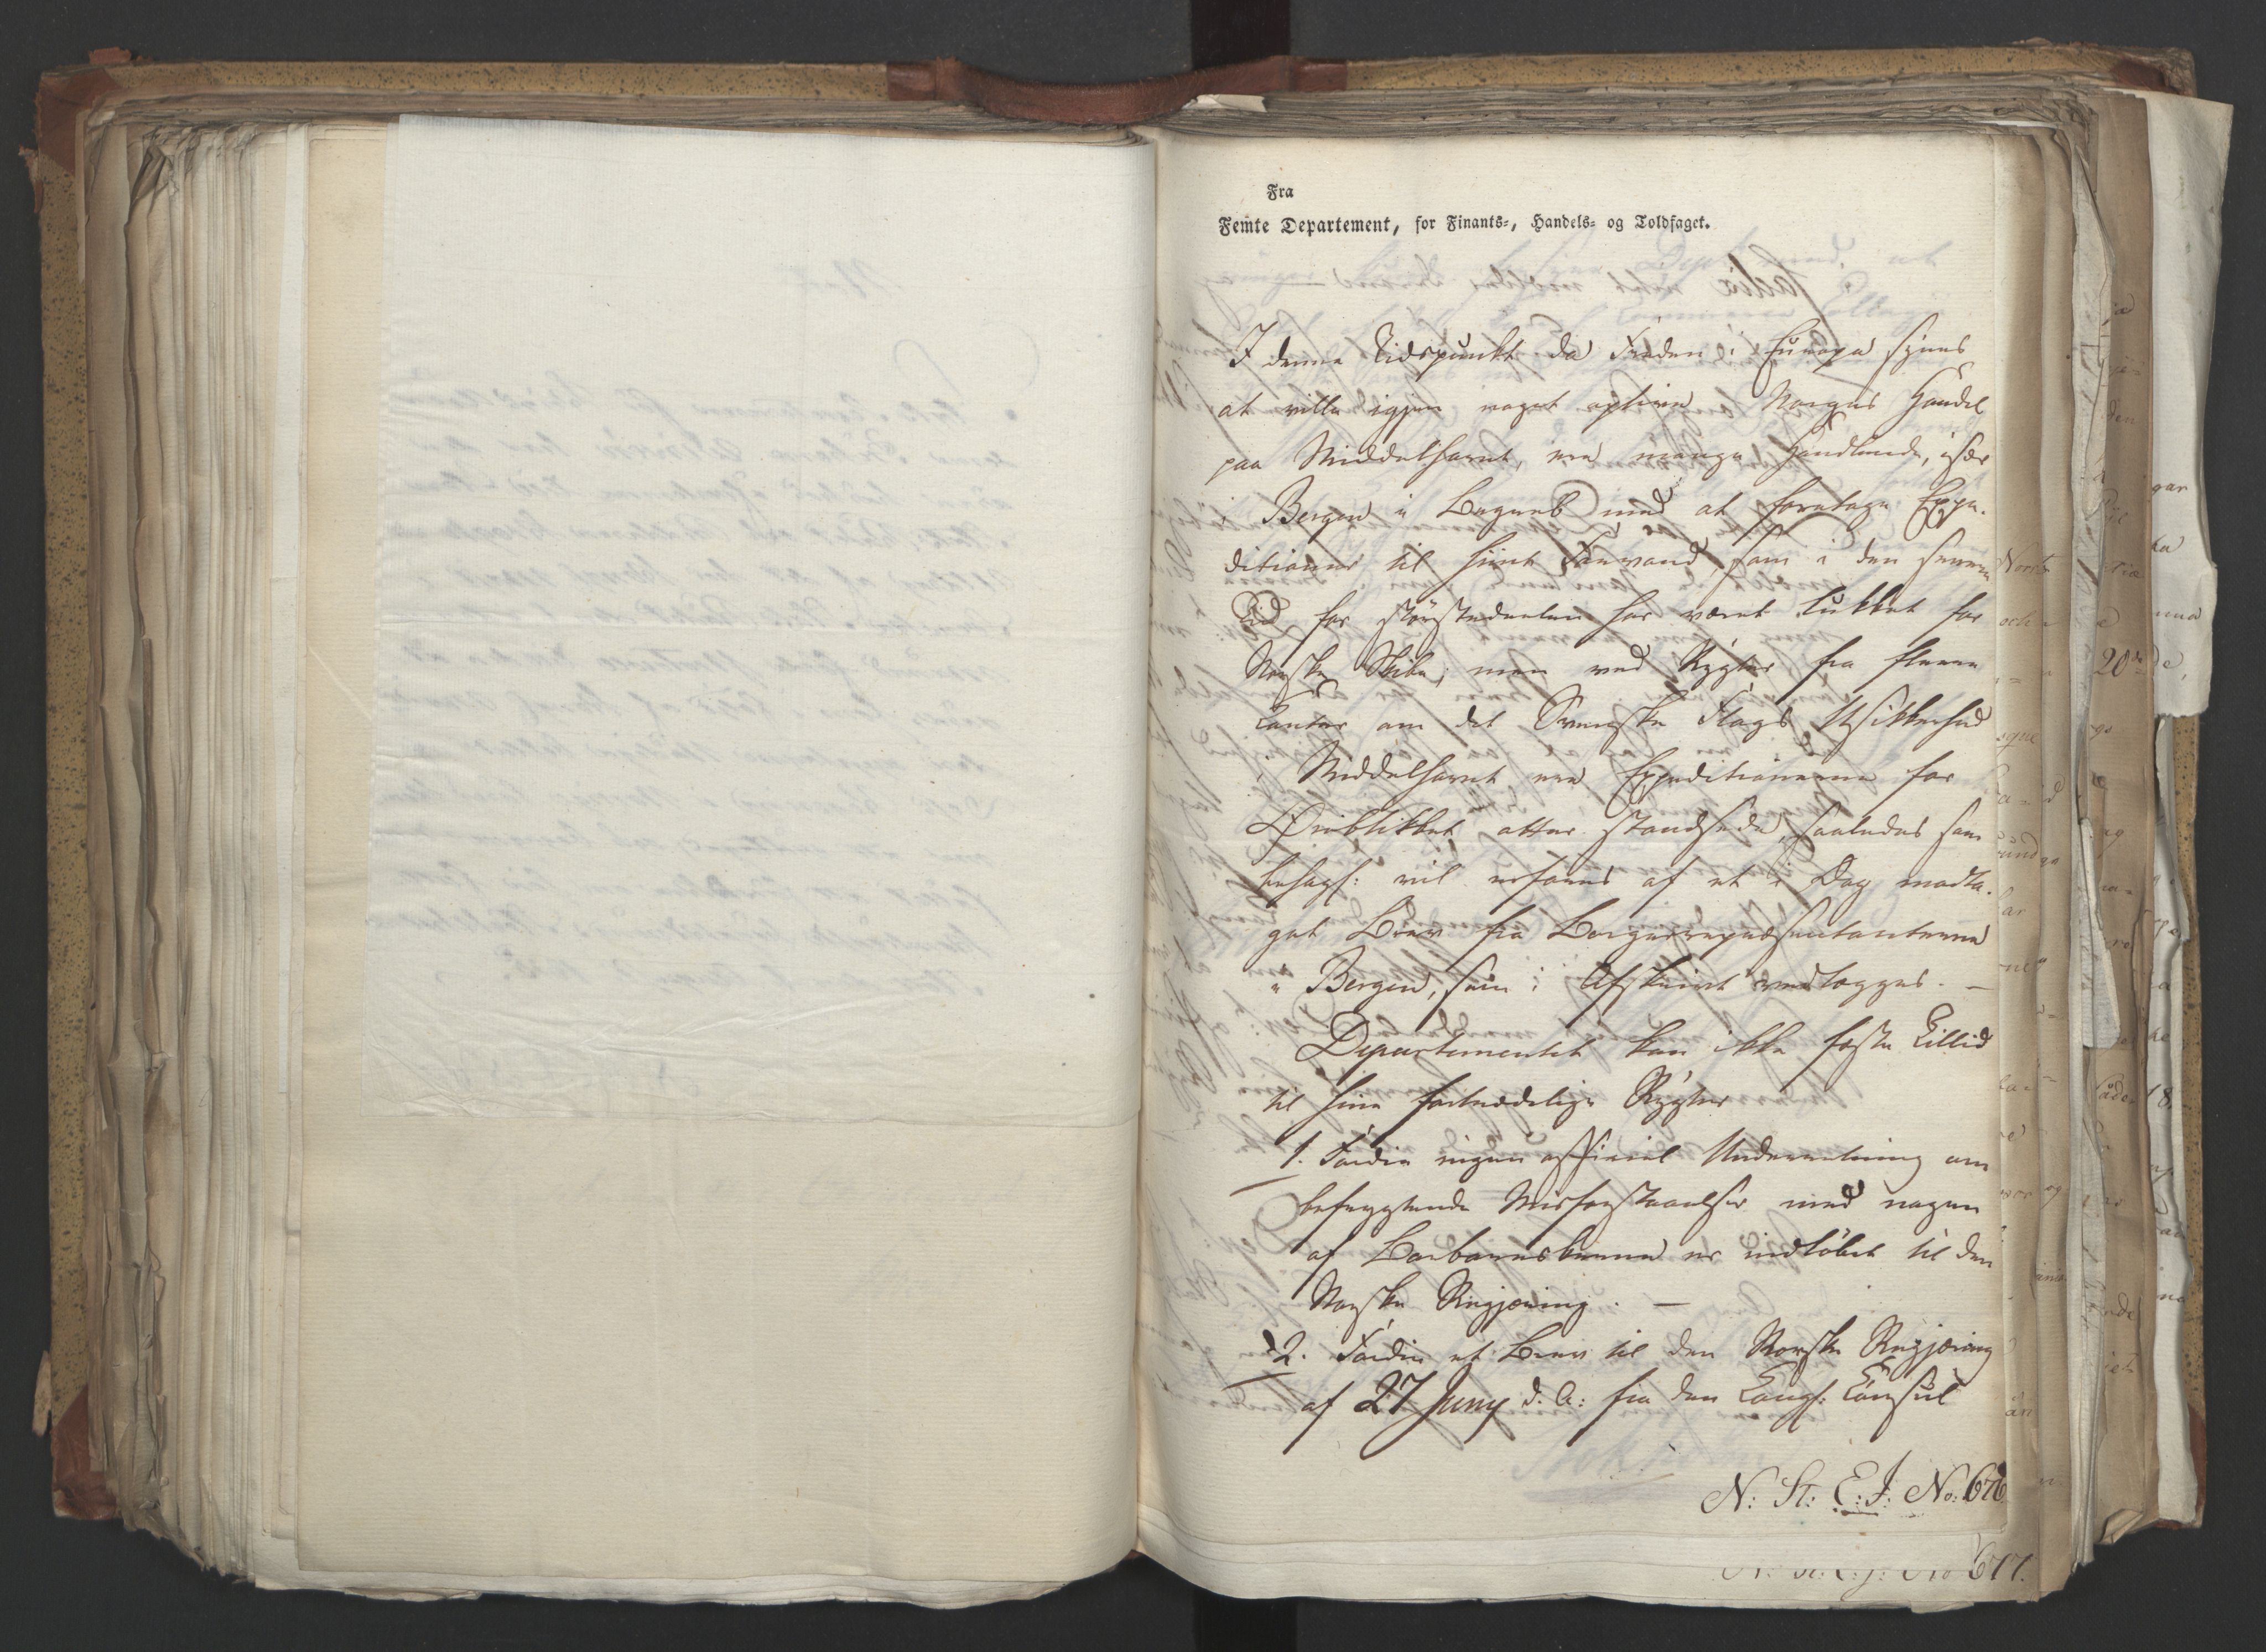 Fra
Femte Departement, for Finants-, Handels- og Toldfaget.
I denne Tidspunkt da Freden i Europa synes
at ville igjen noget oplive Norges Handel
paa Middelhavet, ere mange Handlende, især
i Bergen i Begreb med at foretage Expe-
ditioner til hiint Farvand, som i den senere
Tid for størstedeelen har været lukket for
Norske Skibe; men ved Rygter fra flere
Kanter om det Svenske Flags Usikkerhed
i Middelhavet, ere Expeditionerne for
Øieblikket atter standsede, saaledes som
behagl: vil erfares af et i Dag modta-
get Brev fra Borgerrepræsentanterne
i Bergen, som i Afskrivt vedlægges. —
Departementet kan ikke fæste Tillid
til hine fortrædelige Rygter
1. Fordi ingen officiel Underretning om
befrygtende Misforstaaelser med nogen
af Barbareskerne er indløbet til den
Norske Regjering. —
2. Fordi et Brev til den Norske Regjering
af 27 Juny d. A: fra den Kongl: Consul
N: St: E: J: No: 676
677.